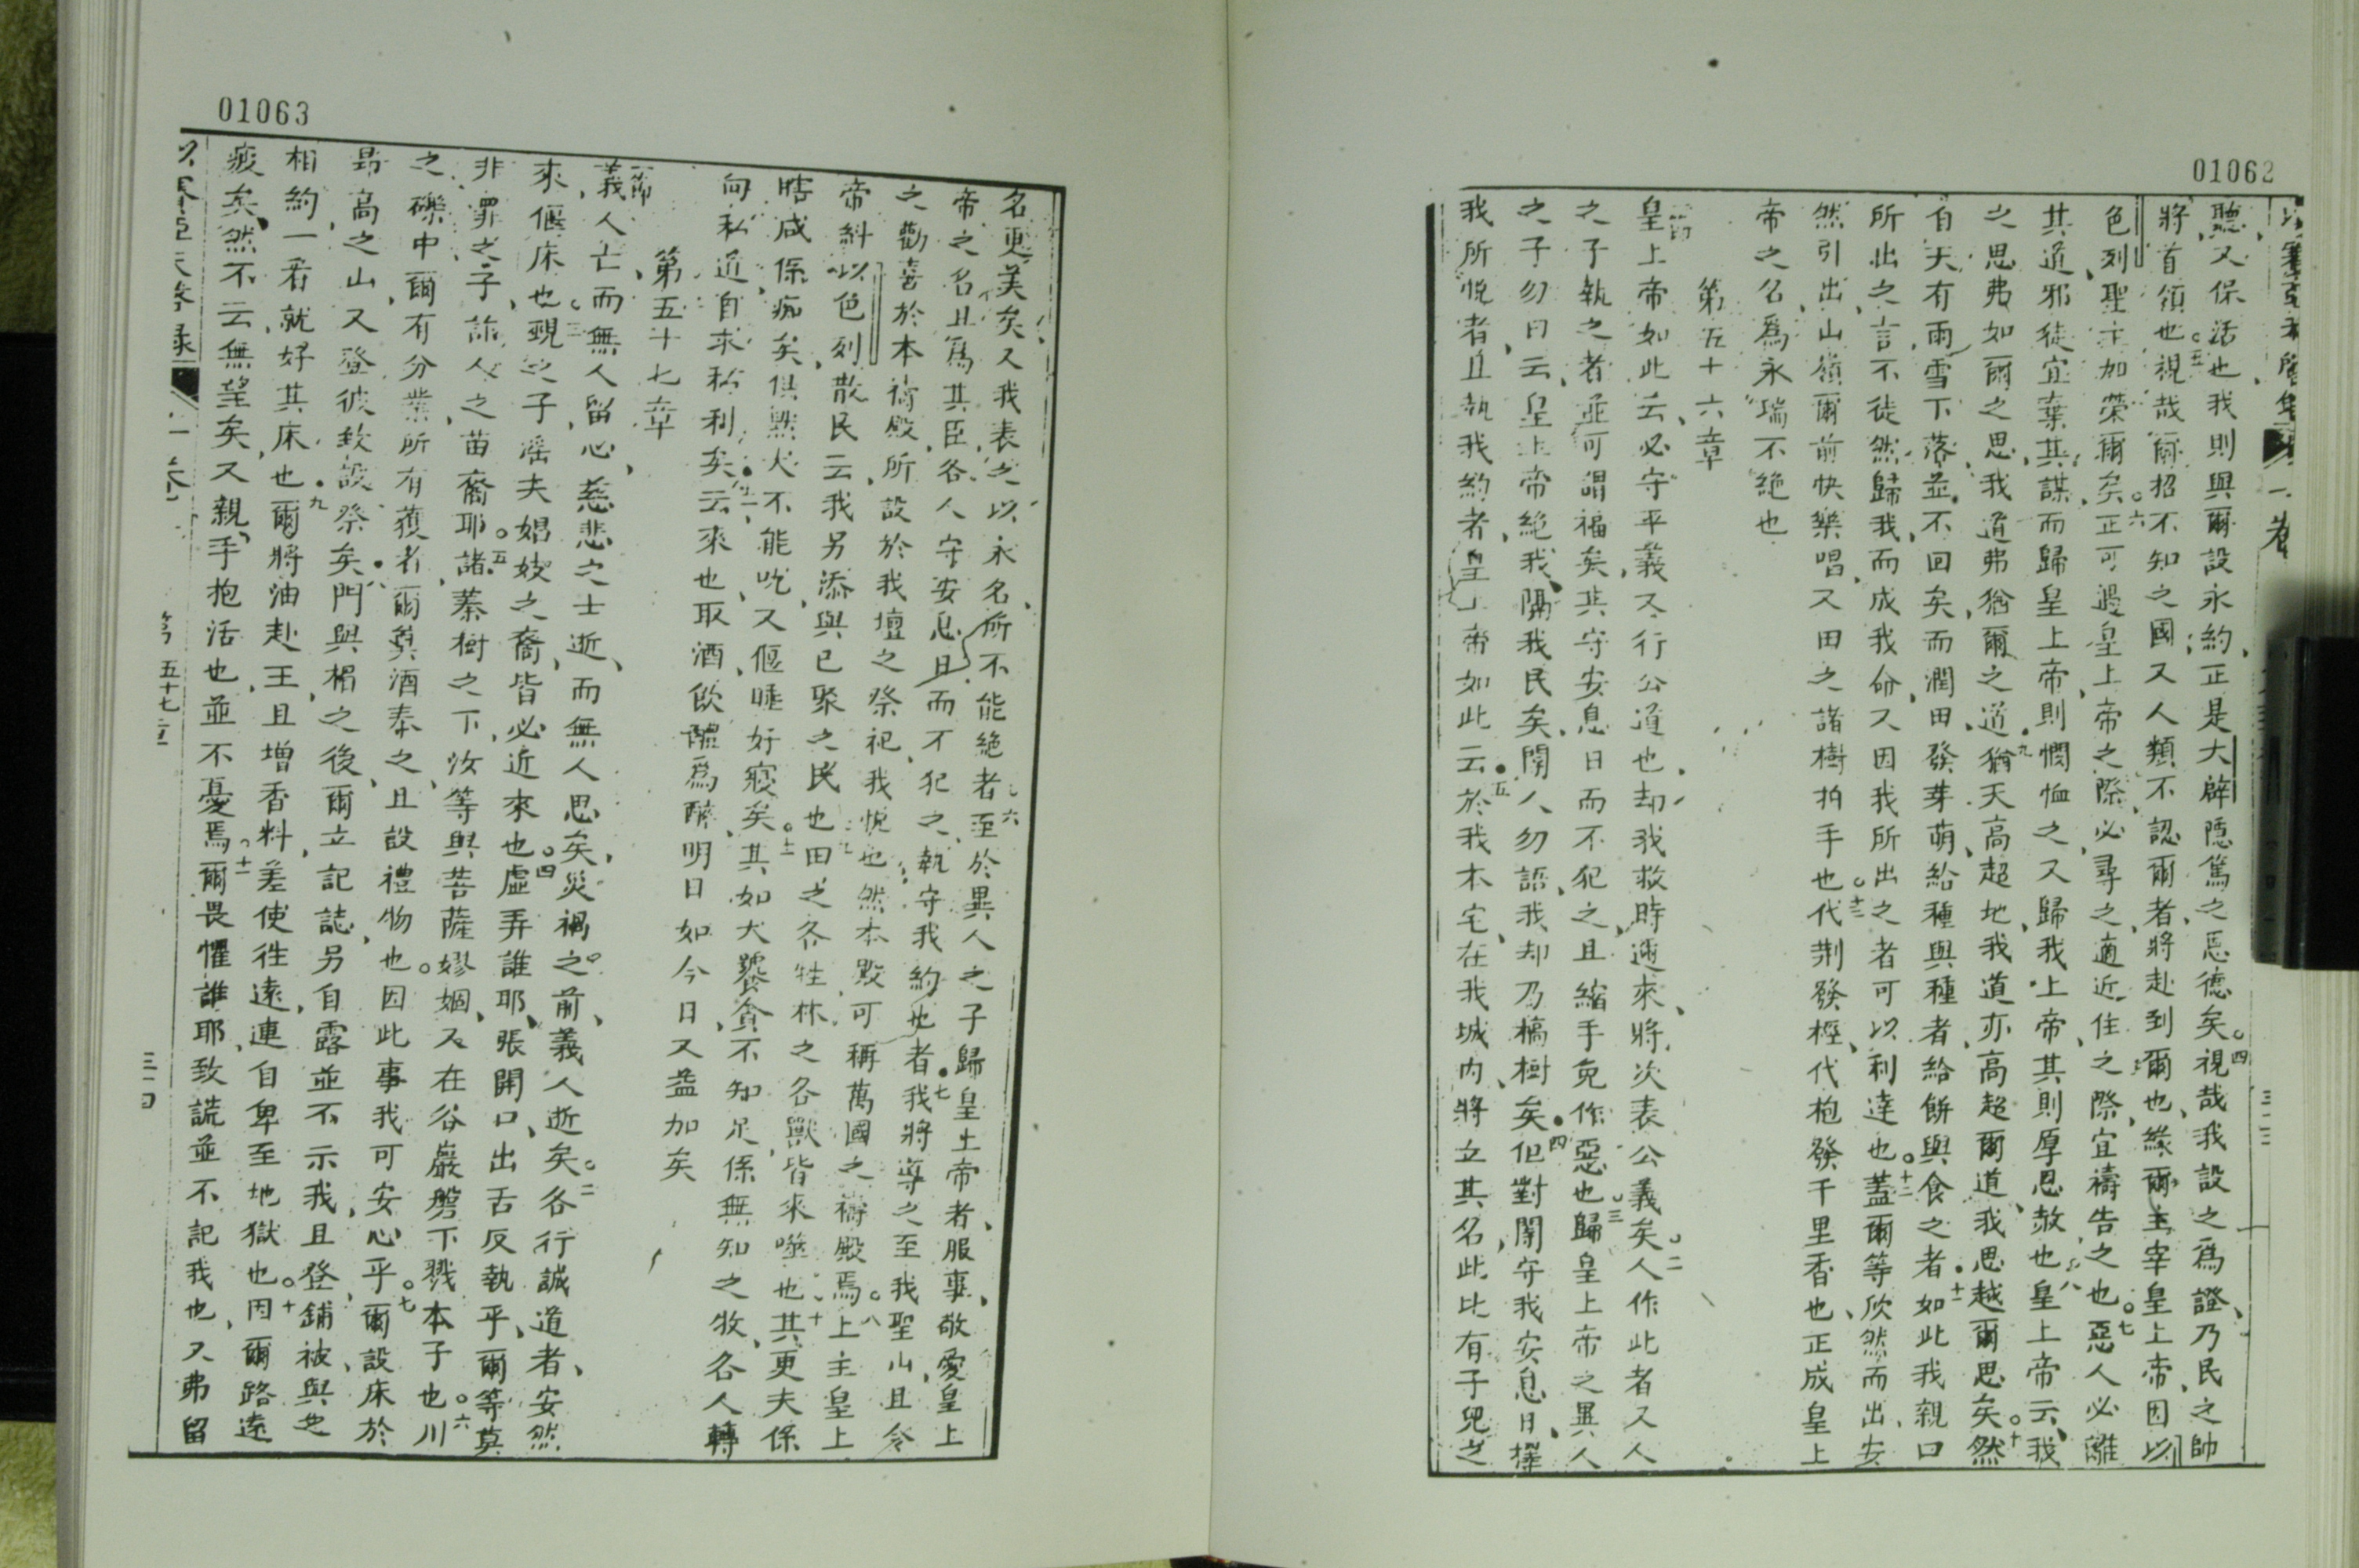 01062
聽又保活也我則與爾設永約正是大辟隱篤之恩德矣四視哉我設之爲證乃民之帥
將首領也五視哉爾招不知之國又人類不認爾者將赴到爾也緣爾主宰皇上帝因以
色列聖主加榮爾矣六正可遇皇上帝之際必尋之適近住之際宜禱告之也七惡人必離
其道邪徒宜棄其謀而歸皇上帝則憫恤之又歸我上帝其則厚恩赦也八皇上帝云我
之思弗如爾之思我道弗猶爾之道九猶天高超地我道亦高超爾道我思越爾思矣十然
自天有雨雪下落並不回矣而潤田發芽萌給種與種者給餅與食之者十一如此我親口
所出之言不徒然歸我而成我命又因我所出之者可以利達也十二蓋爾等欣然而出安
然引出山嶺爾前快樂唱又田之諸樹拍手也十三代荆發樫代枹發千里香也正成皇上
帝之名爲永瑞不絶也
第五十六章
皇上帝如此云必守平義又行公道也却我救時邇來將次表公義矣二人作此者又人
之子執之者並可謂福矣其守安息日而不犯之且縮手免作惡也三歸皇上帝之異人
之子勿曰云皇上帝絶我隔我民矣閹人勿語我却乃槁樹矣四但對閹守我安息日擇
我所悅者且執我約者皇上帝如此云五於我本宅在我城内將立其名此比有子兒之
01063
名更美矣又我表之以永名所不能絶者六至於異人之子歸皇上帝者服事敬愛皇上
帝之名且爲其臣各人守安息日而不犯之執守我約也者七我將導之至我聖山且令
之勸喜於本禱殿所設於我壇之祭祀我悅也然本殿可稱萬國之禱殿焉八上主皇上
帝糾以色列散民云我另添與已聚之民也九田之各牲林之各獸皆來噬也十其更夫係
瞎咸係痴矣俱點犬不能吠又偃睡好寢矣十一其如犬饕貪不知足係無知之牧各人轉
向私道自求私利矣十二云來也取酒飲醴爲醉明日如今日又益加矣
第五十七章
一節
義人亡而無人留心慈悲之士逝而無人思矣災禍之前義人逝矣二各行誠道者安然
來偃床也三覡之子滛夫娼妓之裔皆必近來也四虛弄誰耶張開口出舌反執乎爾等莫
非罪之子詠人之苗裔耶五諸蓁樹之下汝等與菩薩嫪婟又在谷巖磐下戮本子也六川
之礫中爾有分業所有獲者爾奠酒奉之且設禮物也因此事我可安心乎七爾設床於
昻高之山又登彼致設祭矣八門與楣之後爾立記誌另自露並不示我且登鋪被與之
相約一看就好其床也九爾將油赴王且增香料差使徃遠連自卑至地獄也十因爾路遠
疲矣然不云無望矣又親手抱活也並不憂焉十一爾畏懼誰耶致謊並不記我也又弗留
第五十七章